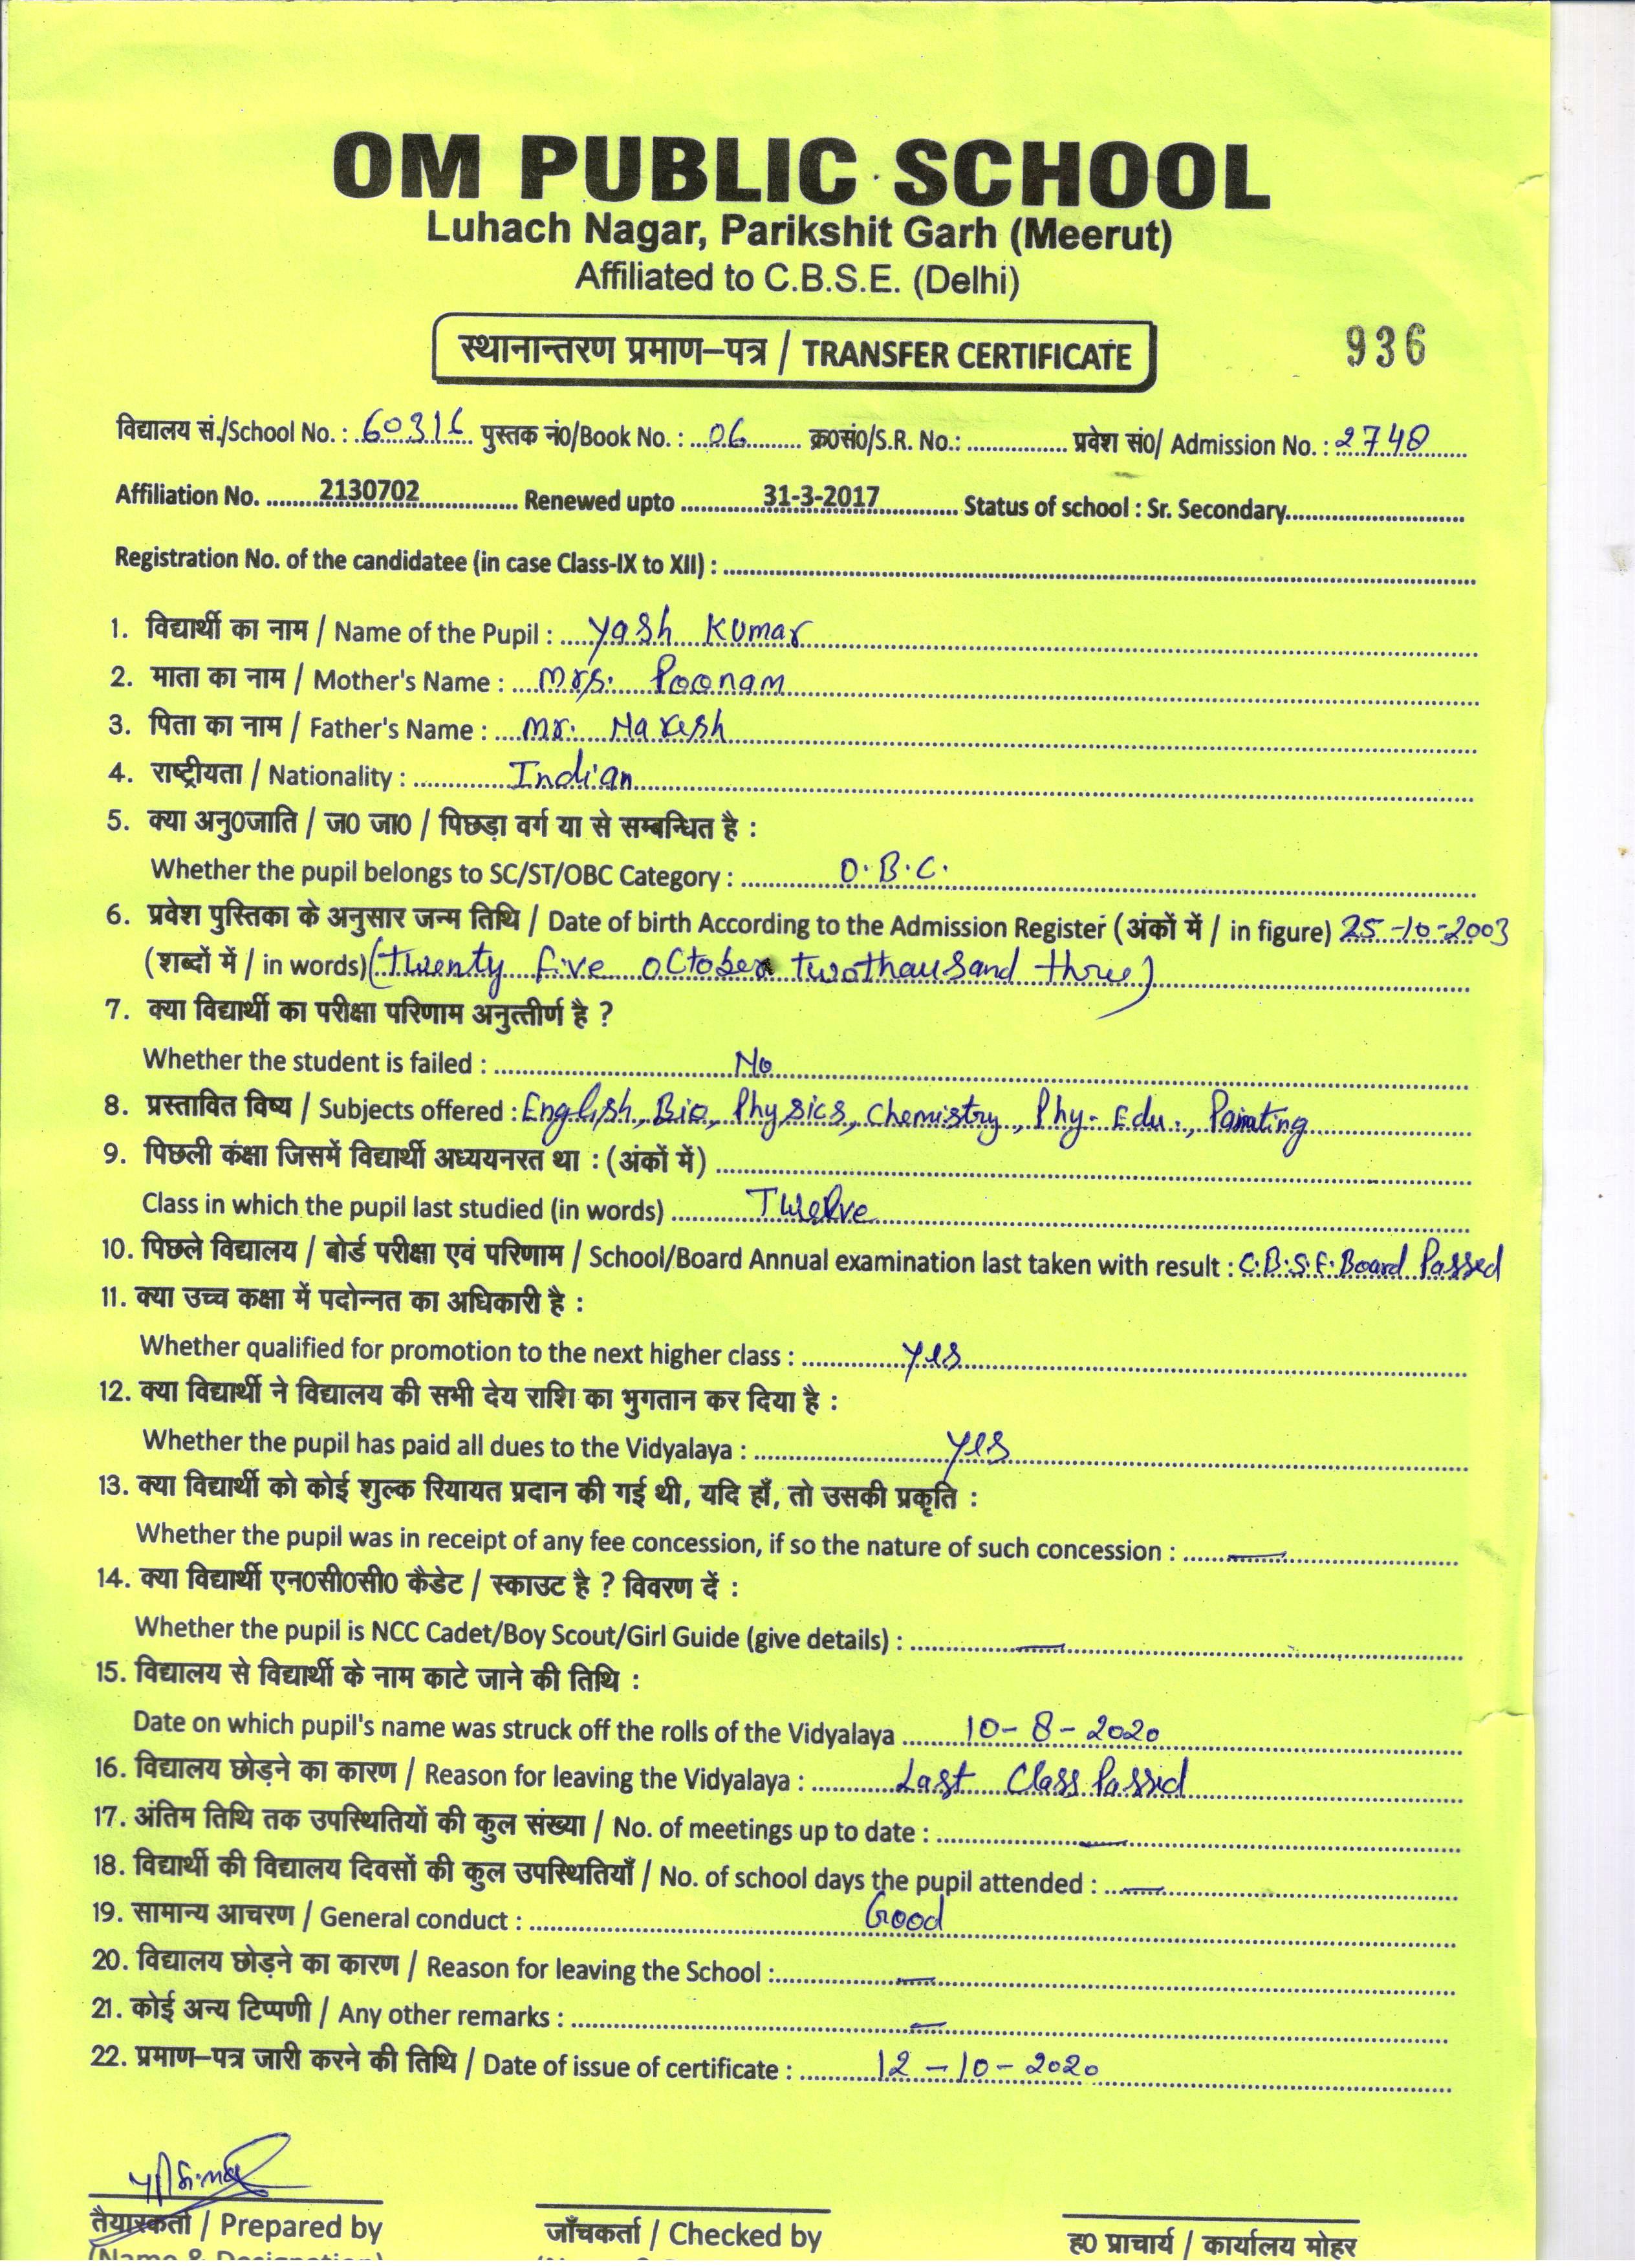 OM PUBLIC SCHOOL
Luhach Nagar, Parikshit Garh (Meerut)
Affiliated to C.B.S.E. (Delhi)
स्थानान्तरण प्रमाण–पत्र / TRANSFER CERTIFICATE 936
विद्यालय सं./School No. : 60316 पुस्तक नं0/Book No. : 06 क्र0सं0/S.R. No.: प्रवेश सं0/ Admission No. : 2748
Affiliation No. 2130702 Renewed upto 31-3-2017 Status of school : Sr. Secondary
Registration No. of the candidatee (in case Class-IX to XII) :
1. विद्यार्थी का नाम / Name of the Pupil : Yash Kumar
2. माता का नाम / Mother's Name : Mrs. Poonam
3. पिता का नाम / Father's Name : Mr. Naresh
4. राष्ट्रीयता / Nationality : Indian
5. क्या अनु0जाति / ज0 जा0 / पिछड़ा वर्ग या से सम्बन्धित है :
Whether the pupil belongs to SC/ST/OBC Category : O.B.C.
6. प्रवेश पुस्तिका के अनुसार जन्म तिथि / Date of birth According to the Admission Register (अंकों में / in figure) 25-10-2003
(शब्दों में / in words) (Twenty five october twothousand three)
7. क्या विद्यार्थी का परीक्षा परिणाम अनुत्तीर्ण है ?
Whether the student is failed : No
8. प्रस्तावित विष्य / Subjects offered : English, Bio, Physics, Chemistry, Phy. Edu., Painting
9. पिछली कंक्षा जिसमें विद्यार्थी अध्ययनरत था : (अंकों में)
Class in which the pupil last studied (in words) Twelve
10. पिछले विद्यालय / बोर्ड परीक्षा एवं परिणाम / School/Board Annual examination last taken with result : C.B.S.E. Board Passed
11. क्या उच्च कक्षा में पदोन्नत का अधिकारी है :
Whether qualified for promotion to the next higher class : Yes
12. क्या विद्यार्थी ने विद्यालय की सभी देय राशि का भुगतान कर दिया है :
Whether the pupil has paid all dues to the Vidyalaya : Yes
13. क्या विद्यार्थी को कोई शुल्क रियायत प्रदान की गई थी, यदि हाँ, तो उसकी प्रकृति :
Whether the pupil was in receipt of any fee concession, if so the nature of such concession : —
14. क्या विद्यार्थी एन0सी0सी0 कैडेट / स्काउट है ? विवरण दें :
Whether the pupil is NCC Cadet/Boy Scout/Girl Guide (give details) : —
15. विद्यालय से विद्यार्थी के नाम काटे जाने की तिथि :
Date on which pupil's name was struck off the rolls of the Vidyalaya 10-8-2020
16. विद्यालय छोड़ने का कारण / Reason for leaving the Vidyalaya : Last Class Passed
17. अंतिम तिथि तक उपस्थितियों की कुल संख्या / No. of meetings up to date : —
18. विद्यार्थी की विद्यालय दिवसों की कुल उपस्थितियाँ / No. of school days the pupil attended : —
19. सामान्य आचरण / General conduct : Good
20. विद्यालय छोड़ने का कारण / Reason for leaving the School : —
21. कोई अन्य टिप्पणी / Any other remarks : —
22. प्रमाण–पत्र जारी करने की तिथि / Date of issue of certificate : 12-10-2020
तैयारकर्ता / Prepared by जाँचकर्ता / Checked by ह0 प्राचार्य / कार्यालय मोहर